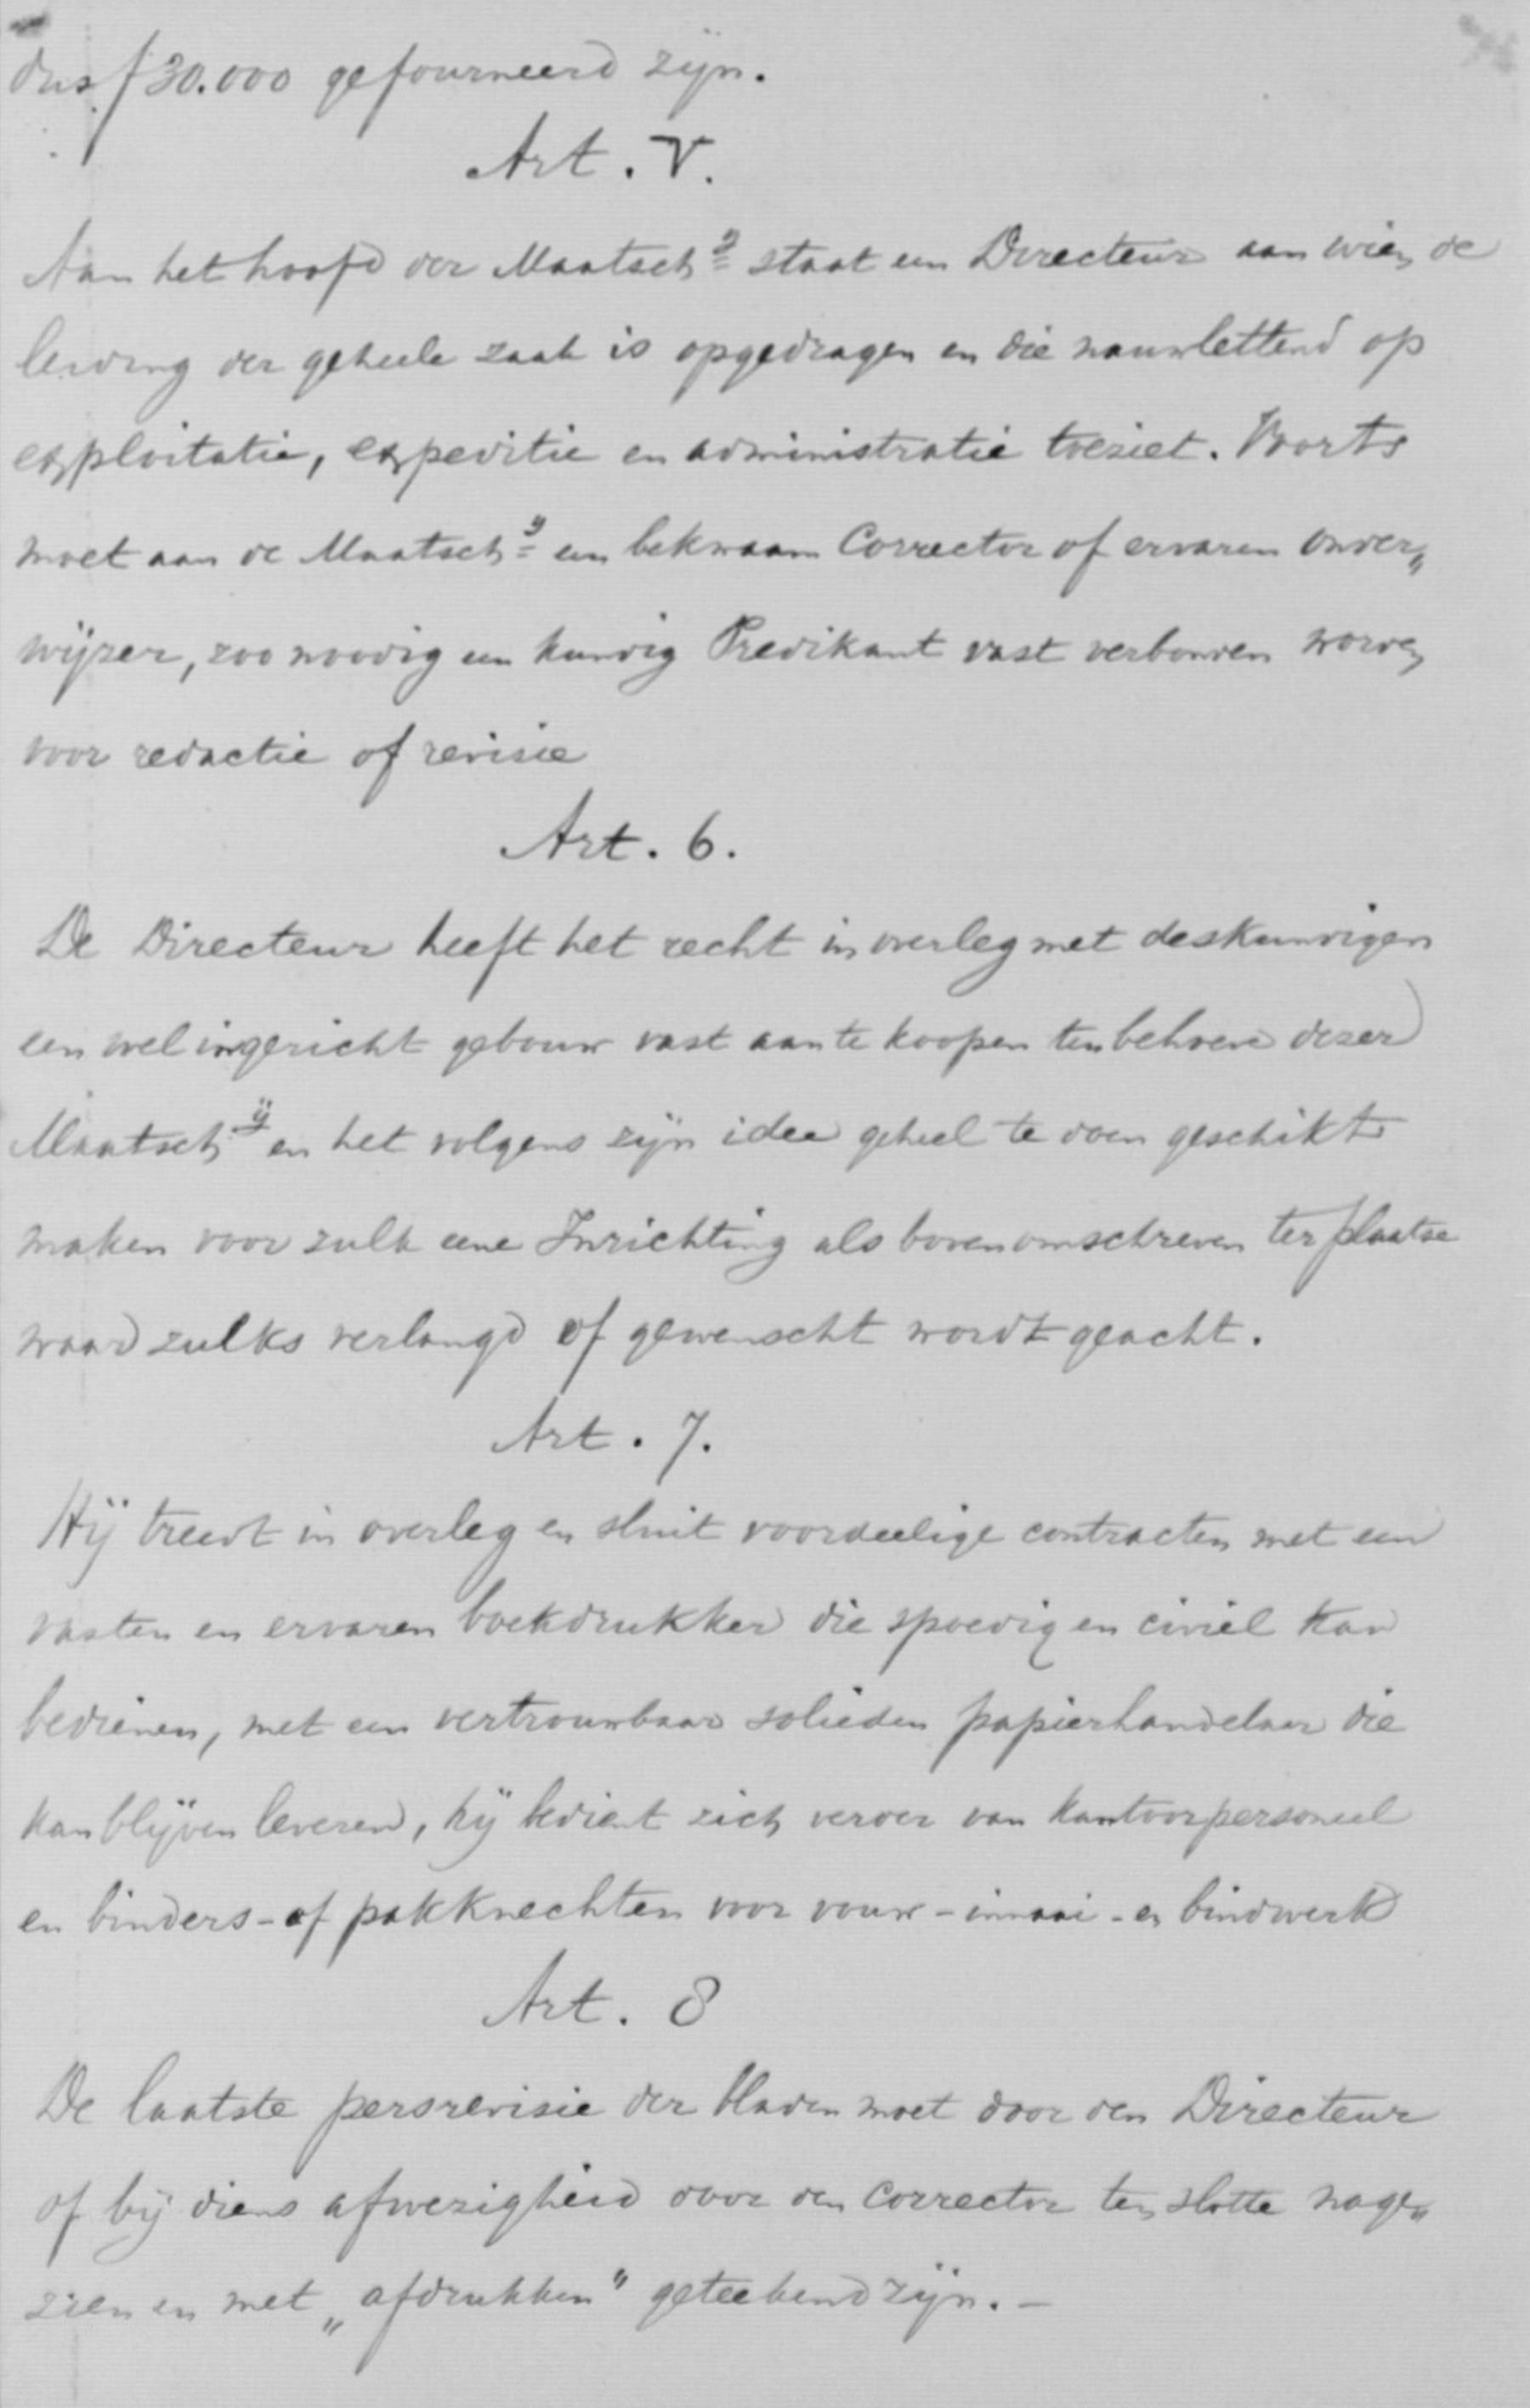 dus f 30.000 gefourneerd zijn.
Art. V.
Aan het hoofd der Maatschij staat een Directeur aan wien de
leiding der geheele zaak is opgedragen en die nauwlettend op
exploitatie, expeditie en administratie toeziet. Voorts
moet aan de Maatschij een bekwaam Corrector of ervaren onder„
wijzer, zoo noodig een kundig Predikant vast verbonden worden
voor redactie of revisie
Art. 6.
De Directeur heeft het recht in overleg met deskundigen
een wel ingericht gebouw vast aan te koopen ten behoeve dezer
Maatschij en het volgens zijn idee geheel te doen geschikt
maken voor zulk eene Inrichting als boven omschreven ter plaatse
waar zulks verlangd of gewenscht wordt geacht.
Art. 7.
Hij treedt in overleg en sluit voordeelige contracten met een
vasten en ervaren boekdrukker die spoedig en civiel kan
bedienen, met een vertrouwbaar solieden papierhandelaar die
kan blijven leveren, hij bedient zich verder van kantoorpersoneel
en binders- of pakknechten voor vouw- innaai- en bindwerk
Art. 8
De laatste persrevisie der bladen moet door den Directeur
of bij diens afwezigheid door den corrector ten slotte nage„
zien en met „afdrukken" geteekend zijn. -